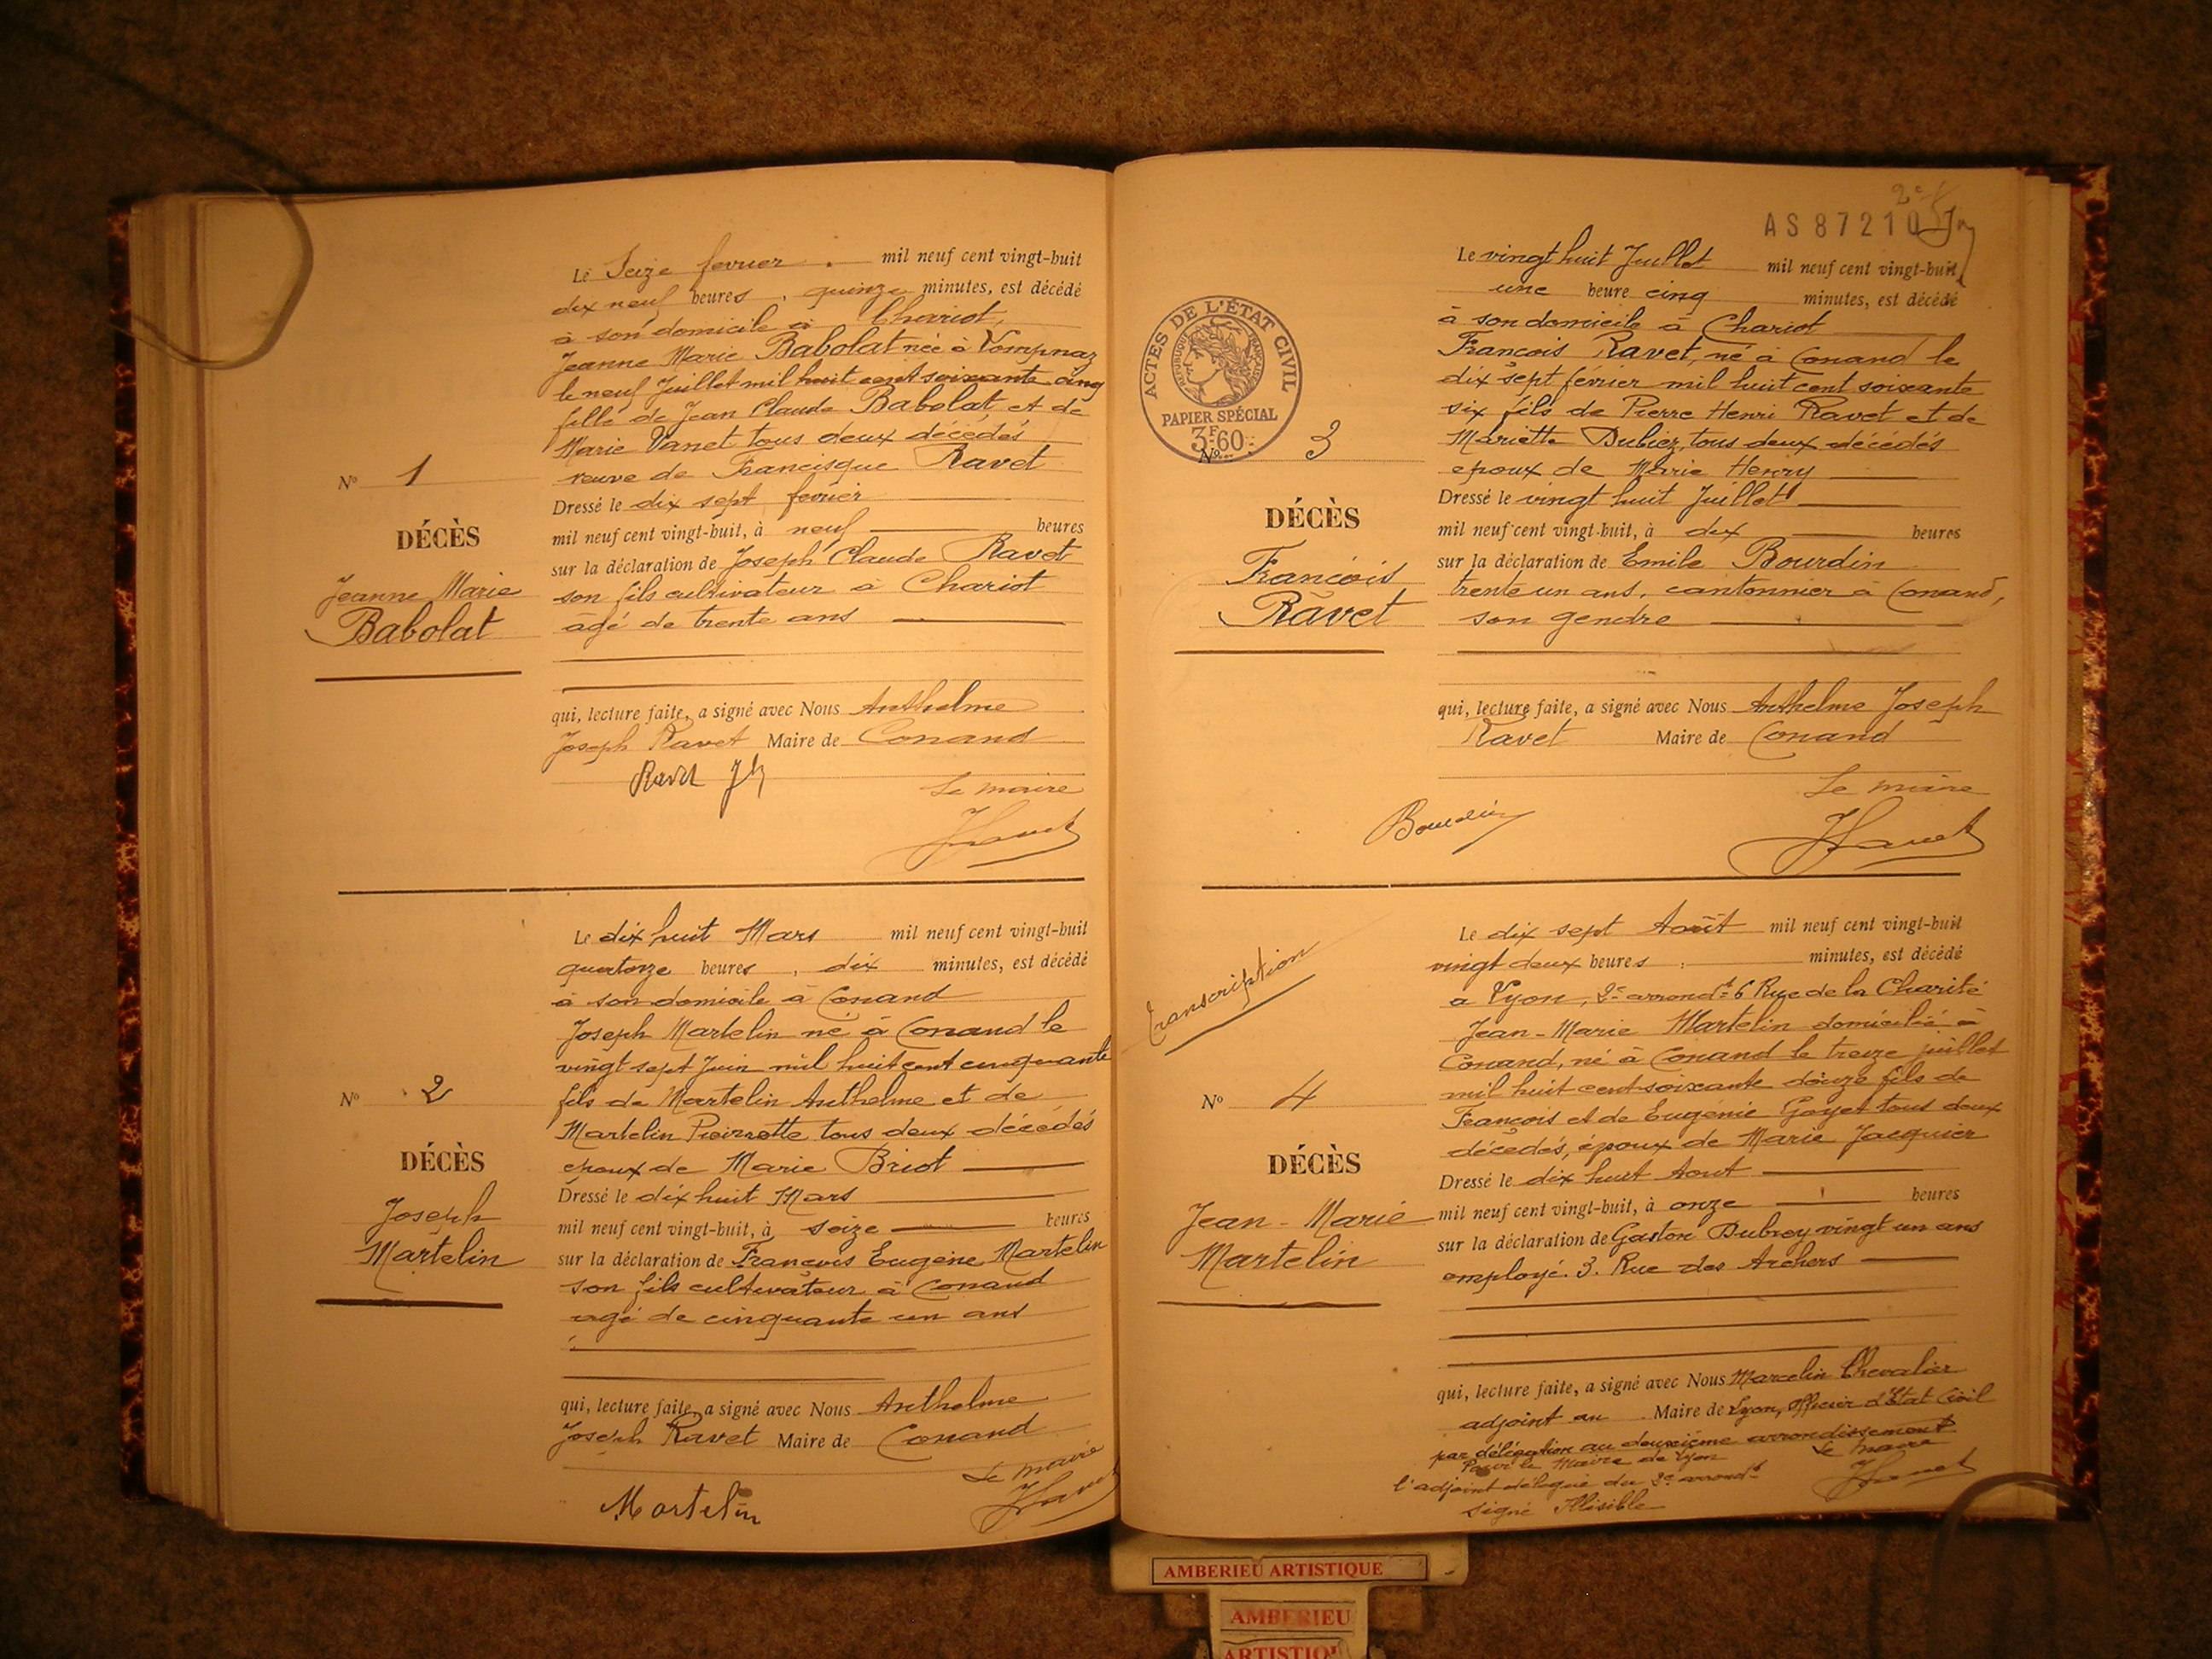 Le Seize fevrier mil neuf cent vingt-huit
dix neuf heures, quinze minutes, est décédé
à son domicile à Chariot,
Jeanne Marie Babolat née à Vompnaz
le neuf Juillet mil huit cent soixante cinq
fille de Jean Claude Babolat, et de
Marie Vanet tous deux décédés
veuve de Francisque Ravet
Nº 1
Dressé le dix sept fevrier
mil neuf cent vingt-huit, à neuf heures
DÉCÈS
sur la déclaration de Joseph Claude Ravet
Jeanne Marie
son fils cultivateur à Chariot
Babolat
agé de trente ans
qui, lecture faite, a signé avec Nous Anthelme
Joseph Ravet Maire de Conand
Ravet Jh
Le maire
JRavet
Le dix huit Mars mil neuf cent vingt-huit
quatorze heures, dix minutes, est décédé
à son domicile à Conand
Joseph Martelin né à Conand le
vingt sept Juin mil huit cent cinquante
Nº 2
fils de Martelin Anthelme et de
Martelin Pierrette tous deux décédés
DÉCÈS
epoux de Marie Briot
Dressé le dix huit Mars
Joseph
mil neuf cent vingt-huit, à seize heures
Martelin
sur la déclaration de François Eugène Martelin
son fils cultivateur à Conand
agé de cinquante un ans
qui, lecture faite, a signé avec Nous Anthelme
Joseph Ravet Maire de Conand
Le maire
JRavet
Martelin
2e
AS 87210
Le vingt huit Juillet mil neuf cent vingt-huit
une heure cinq minutes, est décédé
à son domicile à Chariot
François Ravet, né à Conand le
dix sept février mil huit cent soixante
six fils de Pierre Henri Ravet et de
Mariette Dubiez, tous deux décédés
epoux de Marie Henry
ACTES DE L'ÉTAT CIVIL
RÉPUBLIQUE FRANÇAISE
PAPIER SPÉCIAL
3F.60
Nº 3
Dressé le vingt huit Juillet
DÉCÈS
mil neuf cent vingt-huit, à dix heures
sur la déclaration de Emile Bourdin
François
trente un ans, cantonnier à Conand,
Ravet
son gendre
qui, lecture faite, a signé avec Nous Anthelme Joseph
Ravet Maire de Conand
Le maire
Bourdin
JRavet
Le dix sept Août mil neuf cent vingt-huit
vingt deux heures minutes, est décédé
transcription
a Lyon, 2e arrondt 6 Rue de la Charité
Jean-Marie Martelin domicilié à
Conand, né à Conand le treize juillet
mil huit cent soixante douze fils de
Nº 4
François et de Eugénie Goyet tous deux
décédés, époux de Marie Jacquier
DÉCÈS
Dressé le dix huit Aout
Jean-Marie
mil neuf cent vingt-huit, à onze heures
Martelin
sur la déclaration de Gaston Dubroy vingt un ans
employé. 3. Rue des Archers
qui, lecture faite, a signé avec Nous Marcelin Chevalier
adjoint au Maire de Lyon, officier d'Etat Civil
par délégation au deuxième arrondissement
Pour le Maire de Lyon
Le maire
l'adjoint délégué du 2e arrondt
JRavet
signé Illisible
AMBERIEU ARTISTIQUE
AMBERIEU
ARTISTIQU